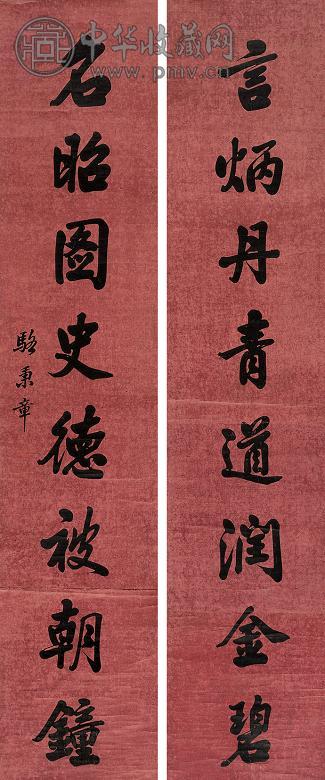 言炳丹青道润金碧
名昭圖史德被朝鐘
駱秉章
中华收藏网
www.pmv.cn